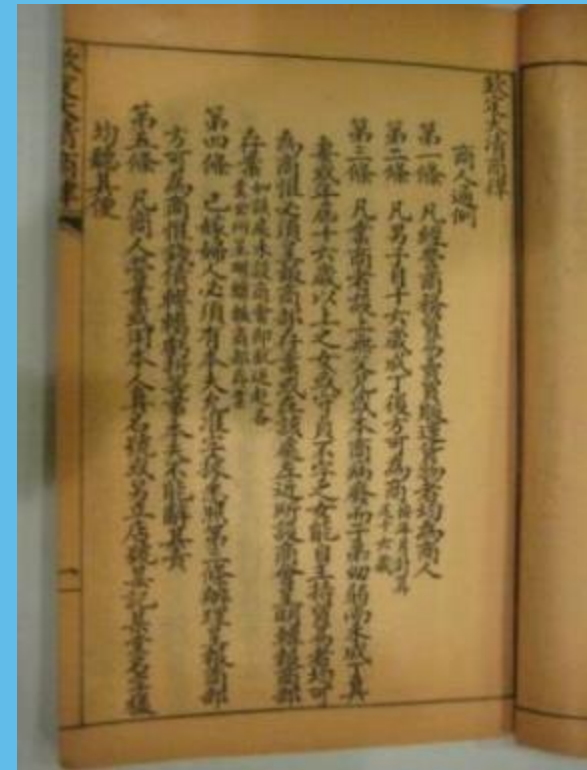 欽定大清商律
商人通例
第一條 凡經營商務貿易買賣販運貨物者均為商人
第二條 凡男子自十六歲成丁後方可為商
第三條 凡業商者設上無父兄或本商病廢而子弟幼弱尚未成丁其
妻或年屆十六歲以上之女或守貞不字之女能自主持貿易者均可
為商惟必須呈報商部存案或在該處左近所設商會呈明轉報商部
存案 如該處未設商會即就近赴各業公所呈明轉報商部存案
第四條 已嫁婦人必須有本夫允准字據呈商第三條辦理呈報商部
方可為商惟錢債轇轕虧折等事本夫不能辭其責
第五條 凡商人營業或用本人真名號或另立店號某記某堂名字樣
均聽其便
欽定大清商律
一